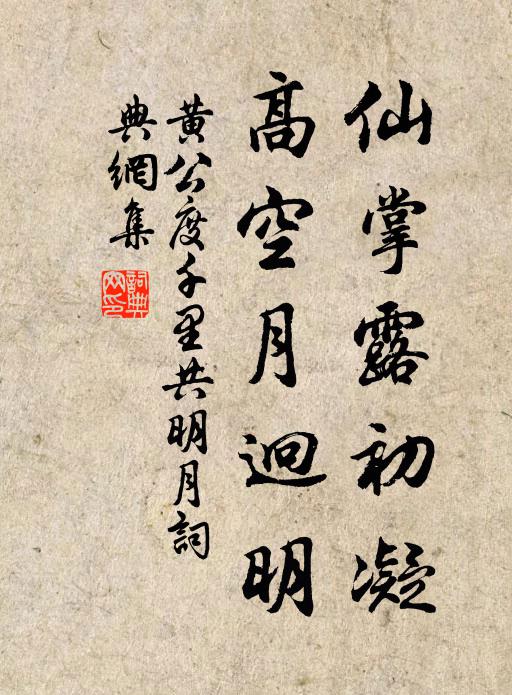 仙掌露初凝
高空月迥明
黄公度千里共明月詞
典網集
詞典
网印